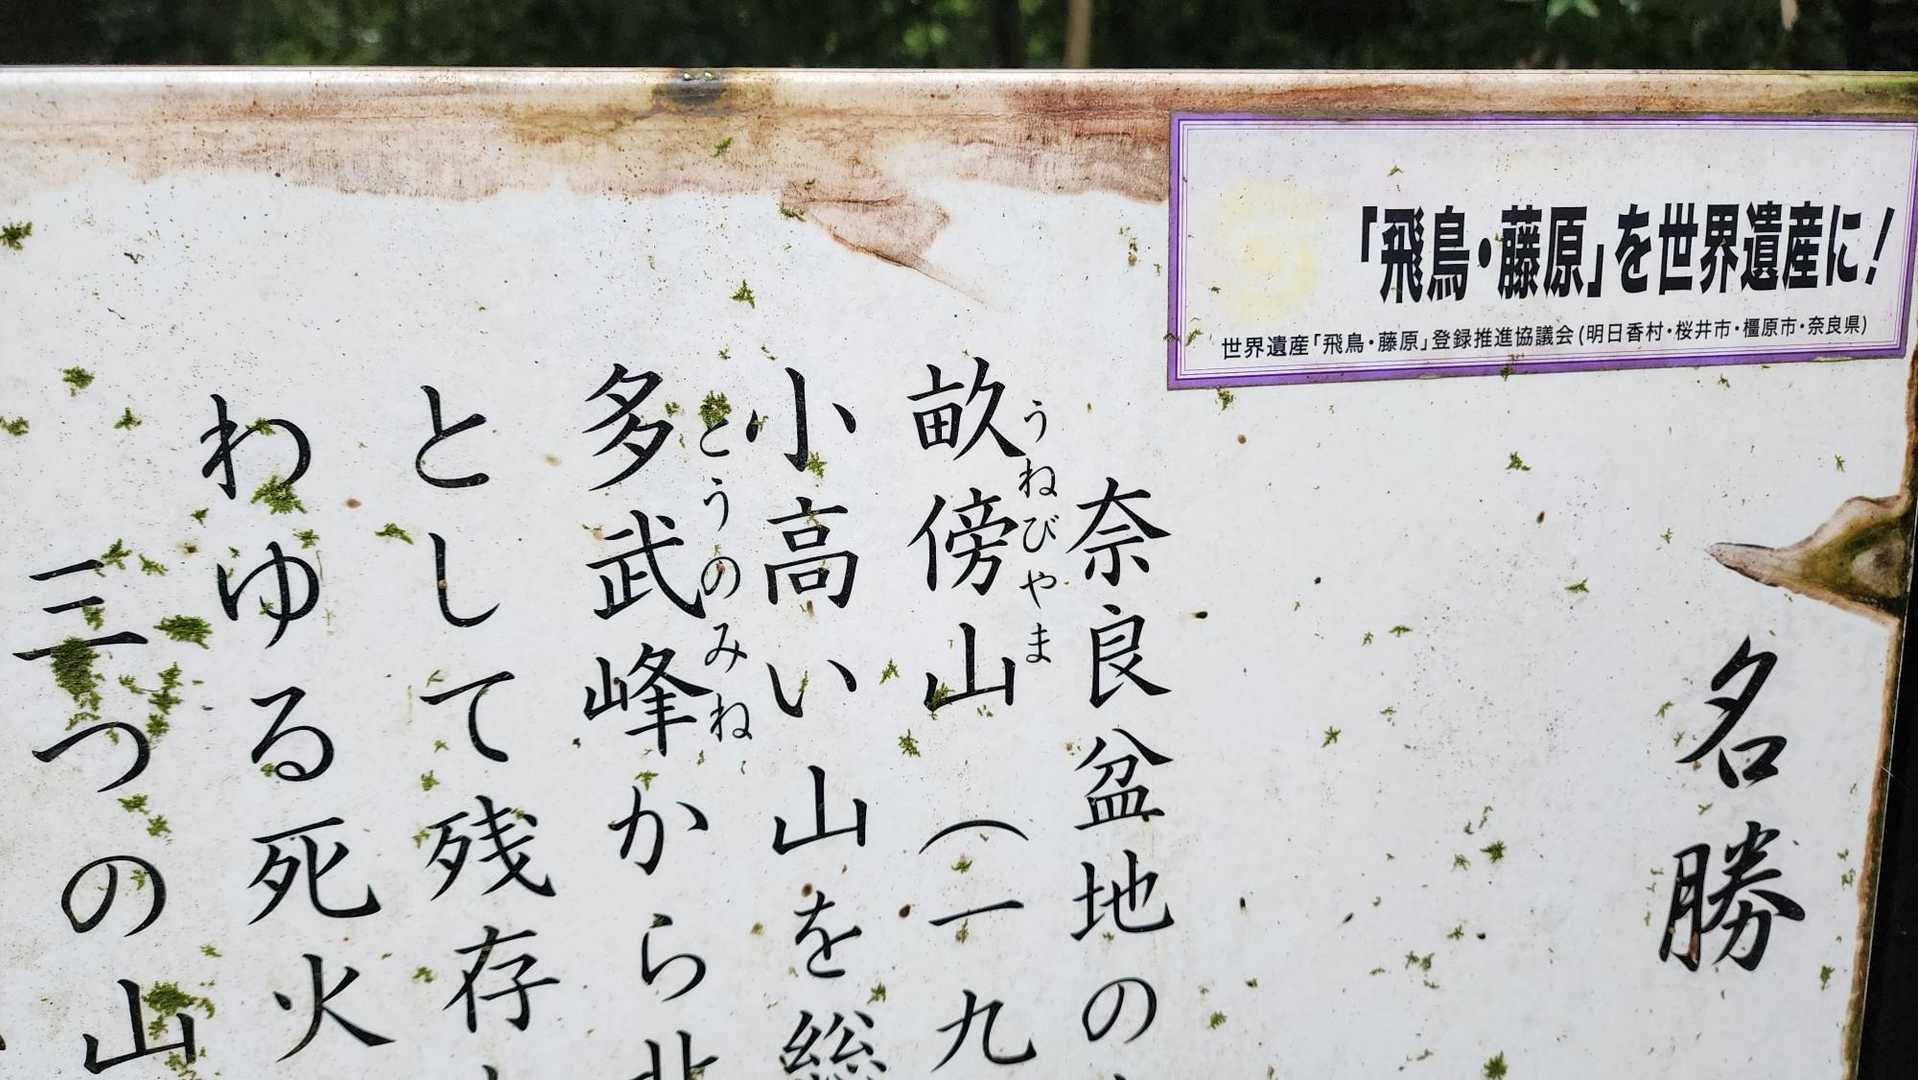 「飛鳥・藤原」を世界遺産に!
世界遺産「飛鳥・藤原」登録推進協議会(明日香村・桜井市・橿原市・奈良県)
名勝
奈良盆地の
うねびやま
畝傍山(一九
小高い山を総
とうのみね
多武峰から北
として残存
わゆる死火
三つの山